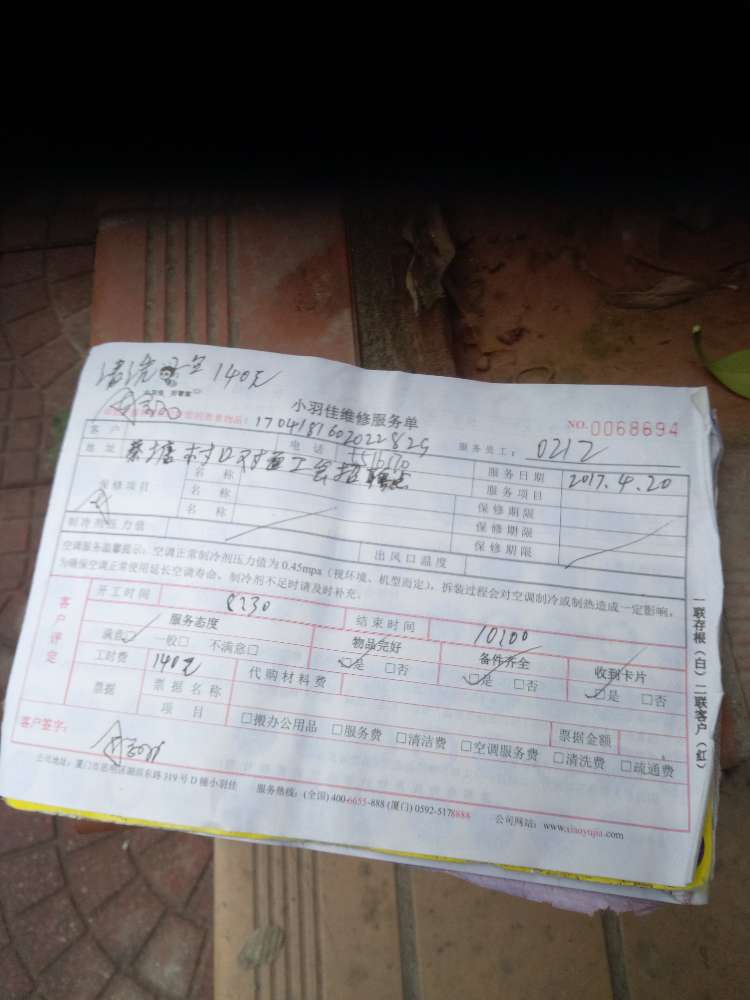 清洗 140元
小羽佳维修服务单
NO.0068694
1704181602022829
服务员工: 0212
客户
电话
服务日期 2017.4.20
地址 蔡塘村口
服务项目
保修项目
名称
保修期限
名称
保修期限
名称
保修期限
制冷剂压力值:
出风口温度
空调服务温馨提示: 空调正常制冷剂压力值为0.45mpa(视环境、机型而定), 拆装过程会对空调制冷或制热造成一定影响,
为确保空调正常使用延长空调寿命, 制冷剂不足时请及时补充。
客户评定
开工时间 8230
结束时间 10200
服务态度
物品完好
备件齐全
收到卡片
满意□ 一般□ 不满意□
□是 □否
□是 □否
□是 □否
工时费 140元
代购材料费
票据
票据名称
项目
□搬办公用品 □服务费 □清洁费 □空调服务费 □清洗费 □疏通费
票据金额
客户签字:
公司地址: 厦门市思明区湖滨东路319号D幢小羽佳
服务热线: (全国) 400-6655-888 (厦门) 0592-5178888
公司网站: www.xiaoyujia.com
一联存根(白) 二联客户(红)